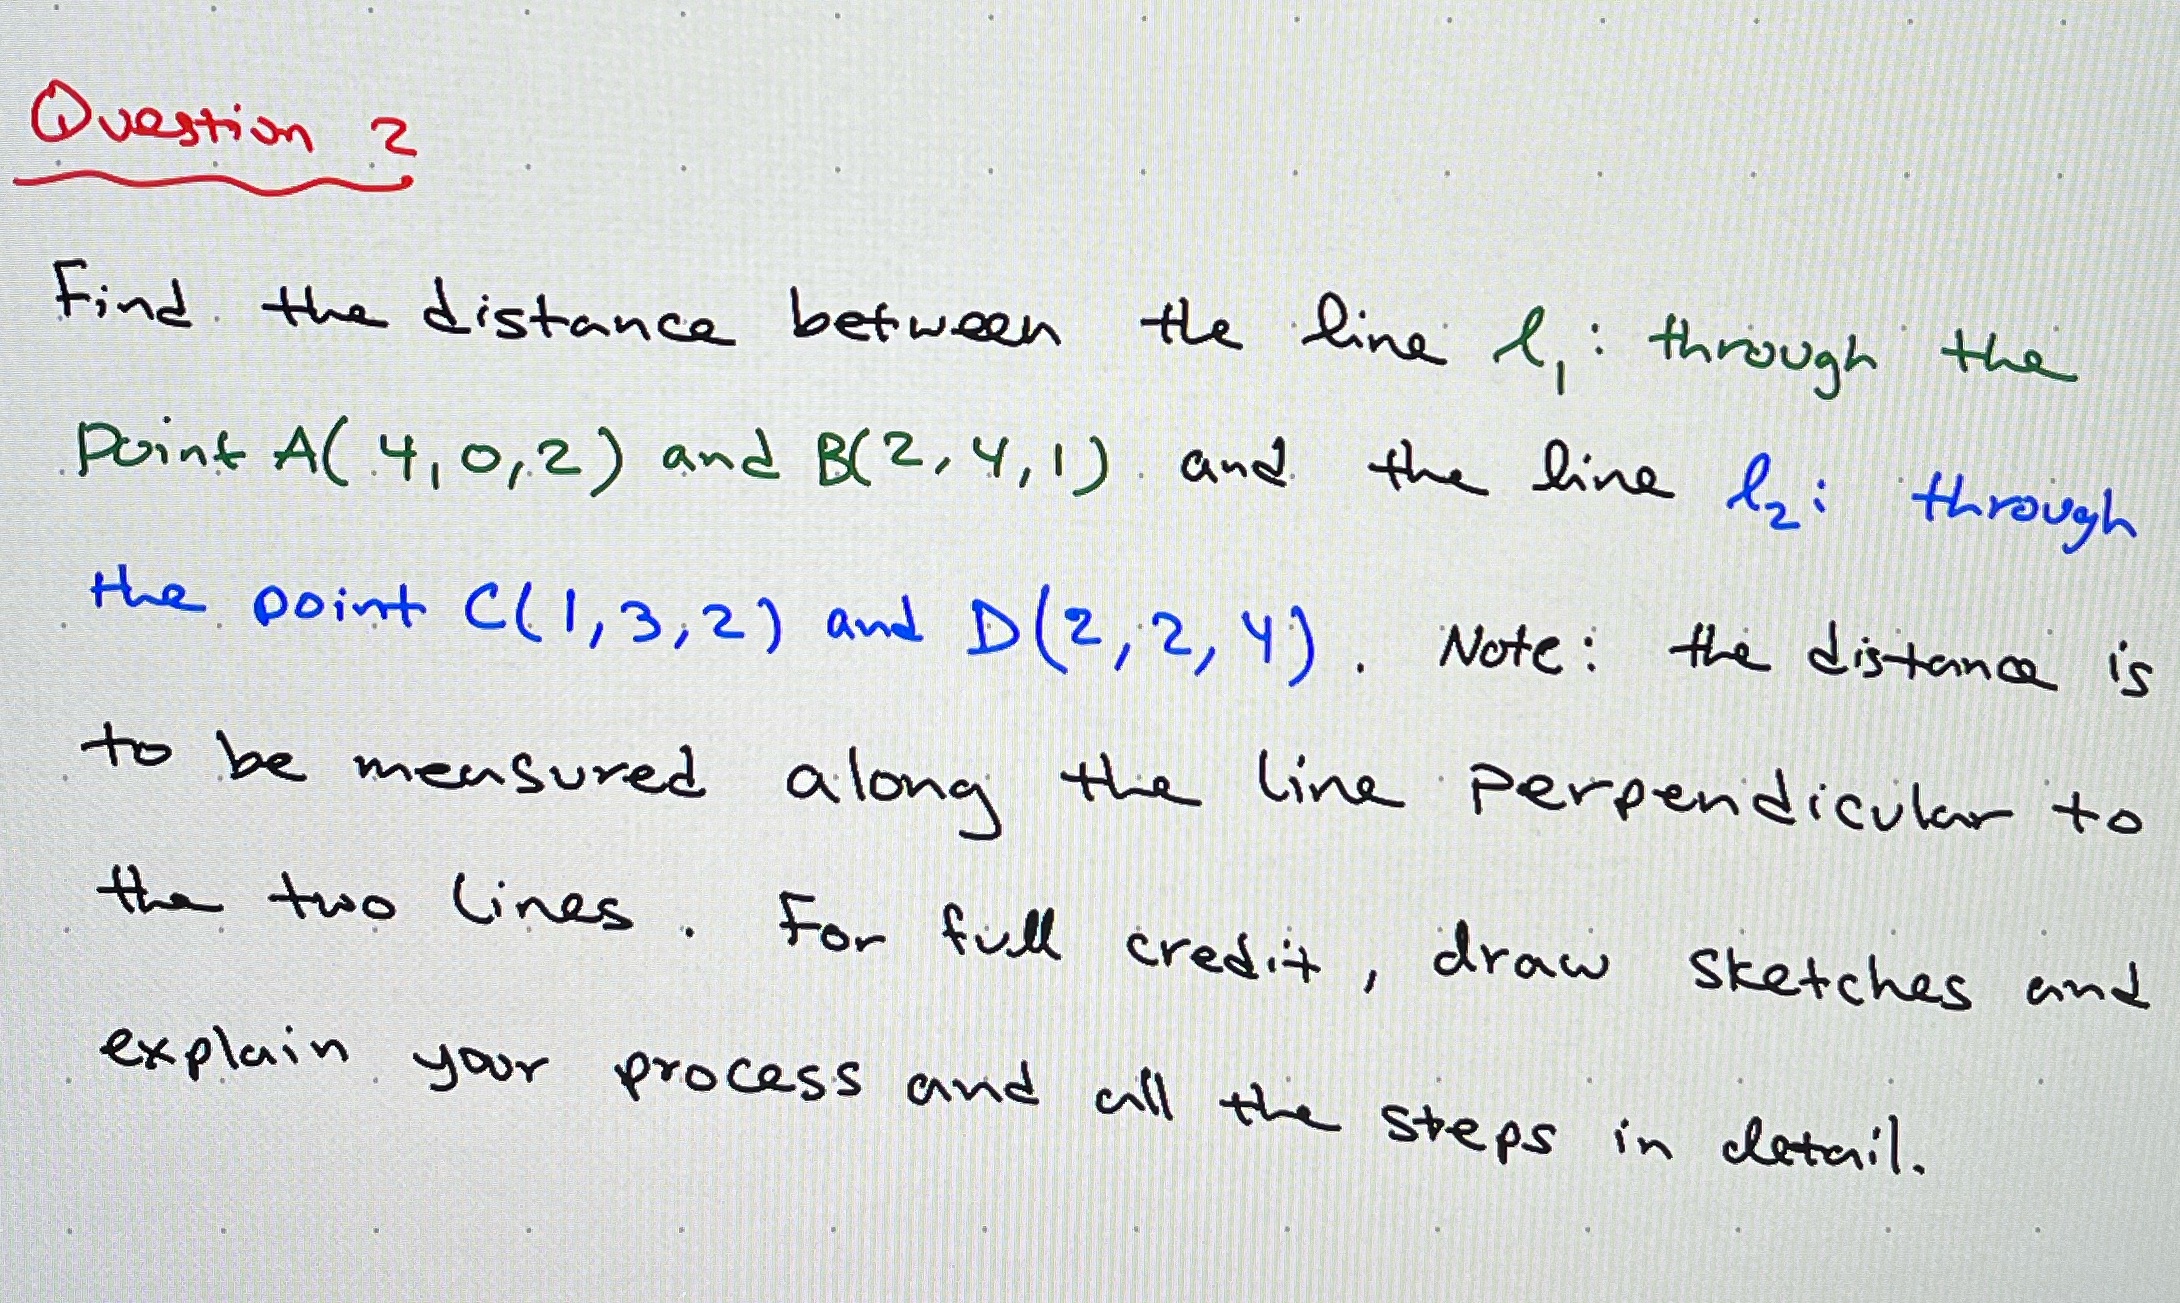 Question 2
Find the distance between the line l₁: through the
Point A(4,0,2) and B(2,4,1) and the line l₂: through
the point C(1,3,2) and D(2,2,4). Note: the distance is
to be measured along the line perpendicular to
the two lines. For full credit, draw sketches and
explain your process and all the steps in detail.